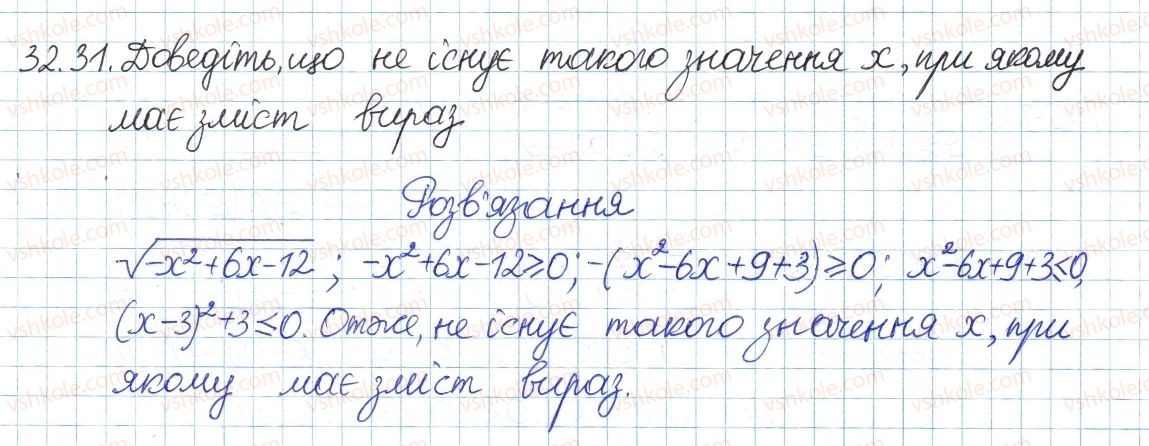 32.31. Доведіть, що не існує такого значення x, при якому
має зміст вираз
Розв'язання
√(-x²+6x-12) ; -x²+6x-12≥0; -(x²-6x+9+3)≥0; x²-6x+9+3≤0,
(x-3)²+3≤0. Отже, не існує такого значення x, при
якому має зміст вираз.